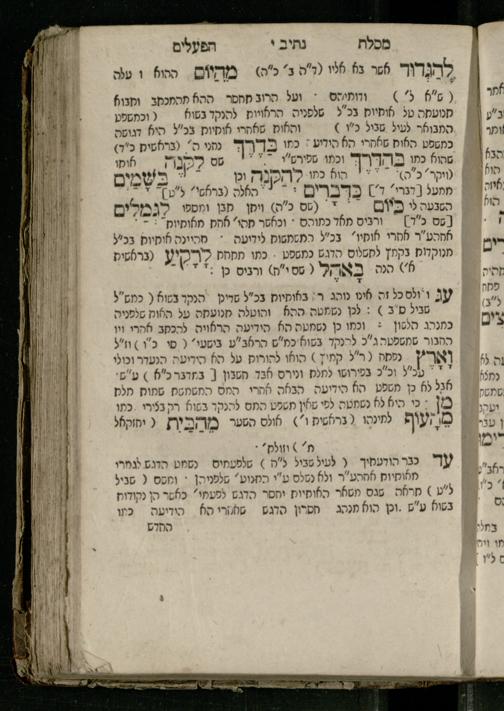 מסלת נתיב י הפעלים
לְהַגְדוּד אשר בא אליו (ד״ה ב׳ כ״ה) מֵהַיּוֹם ההוא ו עלה
( ש״א ל׳ ) ודומיהם ׳ ועל הרוב תחסר ההא מהמכתב ותבוא
תנועתה על אותיות בכ״ל שלפניה הראויות להנקד בשוא ( וכמשפט
המבואר לעיל שביל כ״ו ) והאות שאחרי אותיות בכ״ל היא דגושה
כמשפט האות שאחרי הא הידיעה ׃ כמו בַּדֶּרֶךְ נחני ה׳ (בראשית כ״ד)
שהוא כמו בְּהַדֶּרֶךְ וכמו שפירש״י שם לַקֹּנֶה אותו
(ויקר׳ כ״ה) הוא כמו לְהַקֹּנֶה וכן בַּשָּׁמַיִם
ממעל [דברי׳ ד׳] כַּדְּבָרִים האלה (בראשי׳ ל״ט]
השבעה לי כַּיּוֹם (שם כ״ה) ויתן תבן ומספו לַגְּמַלִּים
[שם כ״ד] ורבים מאד כמוהם ׃ וכאשר תהי׳ אחת מאותיות
אההע״ר אחרי אותיו׳ בכ״ל המשמשות לידיעה ׳ תהיינה אותיות בכ״ל
מנוקדות בקמץ לתשלום הדגש כמשפט ׃ כמו מתחת לָרָקִיעַ (בראשית
א׳) הנה בָאֹהֶל ( שם י״ח) ורבים כן ׃
עג ו ולם כל זה אינו נוהג ר באותיות בכ״ל שדינן הנקד בשוא ( כמש״ל
שביל ס״ב ) ׃ לכן נשמטה ההא והוטלה תנועתה על האות שלפניה
כמנהג הלשון ׃ וכמו כן נשמטה הא הידיעה הראויה להכתב אחרי ויו
החבור שמשפטה ג״כ להנקד בשוא כמ״ש הראב״ע בישעי׳ ( סי׳ כ״ו ) וז״ל
וָאָרֶץ נפתח (ר״ל קמיץ) הואו להורות על הא הידיעה הנעדר וכולי
עכ״ל וכ״כ בפירושו למלת ונירם אבד חשבון [ במדבר כ״א ) ע״ש ׃
אבל לא כן משפט הא הידיעה הבאה אחרי המם המשמשת שמוש מלת
מִן ׃ כי היא לא נשמטה לפי שאין משפט המם להנקד בשוא רק בצירי ׃ כמו
מֵהָעוֹף למינהו ( בראשית ו׳) אולם השער מֵהַבַּיִת ( יחזקאל
מ׳ ) וזולת׳ ׳
עד כבר הודעתיך ( לעיל שביל ל״ה ) שלפעמים נשמט הדגש לגמרי
מאותיות אההע״ר ולא נשלם ע״י התנוע׳ שלפניהן ׃ ומשם ( שביל
ל״ע ) תראה שגם משאר האותיות יחסר הדגש לפעמי׳ כאשר הן נקודות
בשוא ע״ש ׃ וכן הוא מנהג חסרון הדגש שאחרי הא הידיעה כמו
החדש